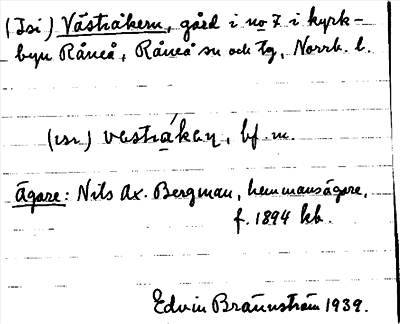 (Isi) Västiåkern, gård i no 7 i kyrk-
byn Råneå, Råneå sn och tg, Norrb. l.
bf. m.
Ägare: Nils Ax. Bergman, hemmansägare,
f. 1894 hb.
Edvin Brännström 1939.